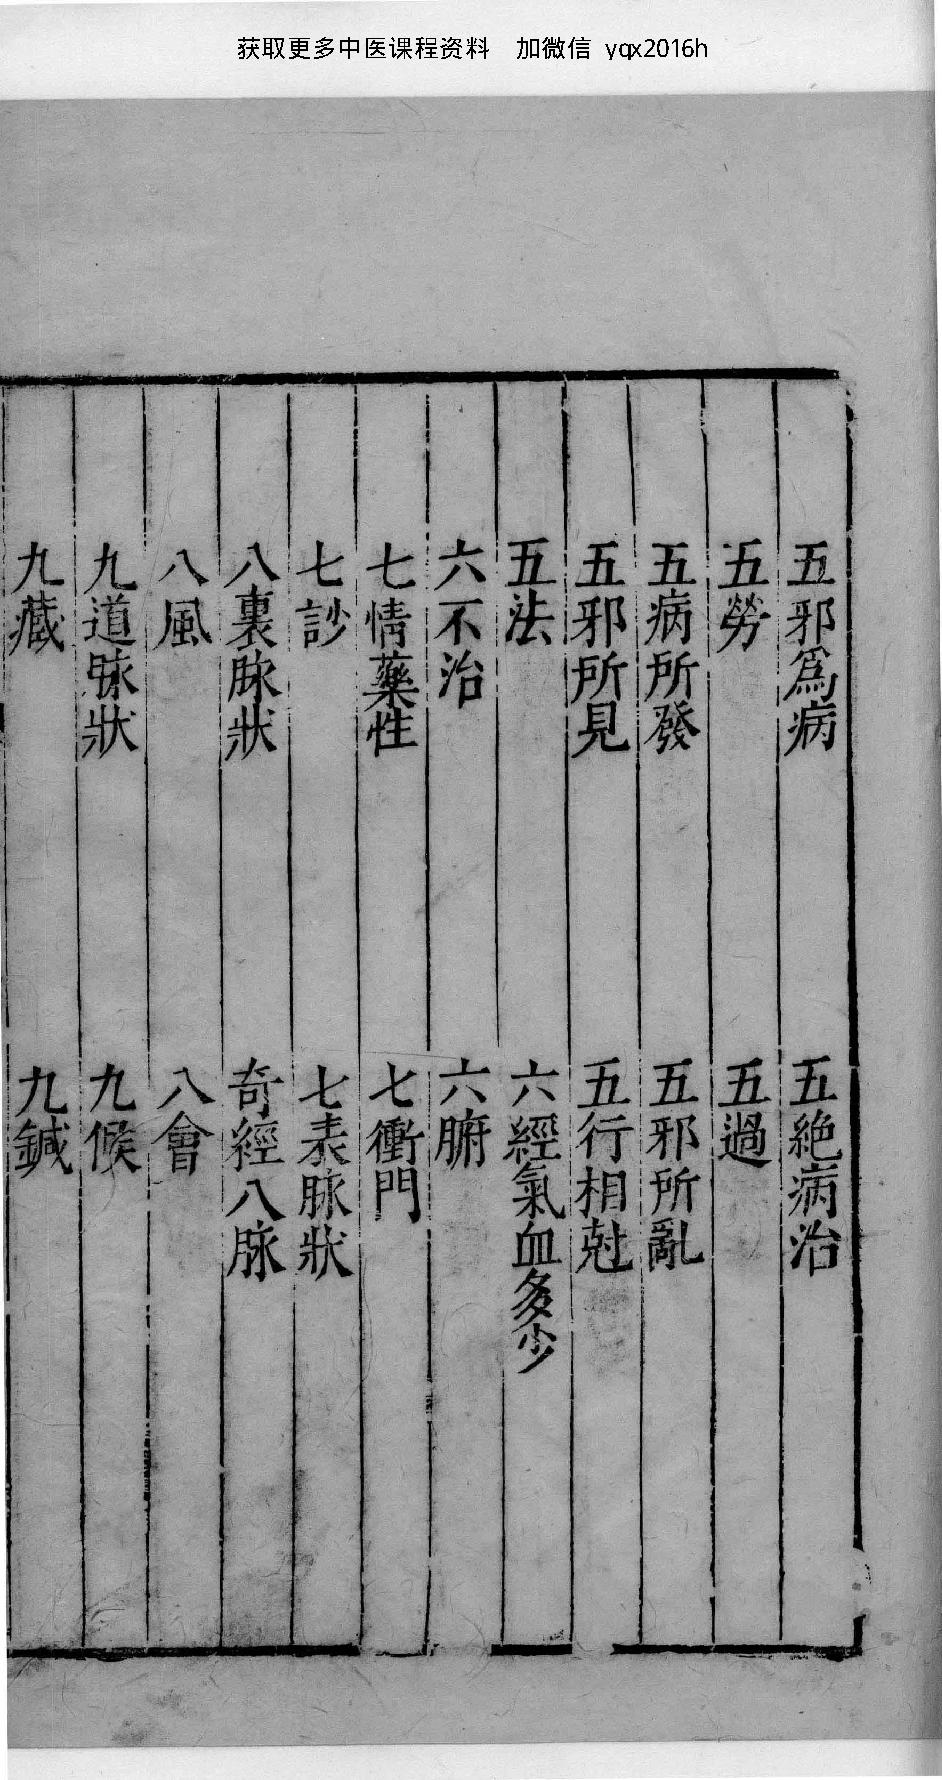 获取更多中医课程资料 加微信 yqx2016h
五邪爲病 五絶病治
五勞 五過
五病所發 五邪所亂
五邪所見 五行相尅
五法 六經氣血多少
六不治 六腑
七情藥性 七衝門
七診 七表脉狀
八裏脉狀 奇經八脉
八風 八會
九道脉狀 九候
九藏 九鍼